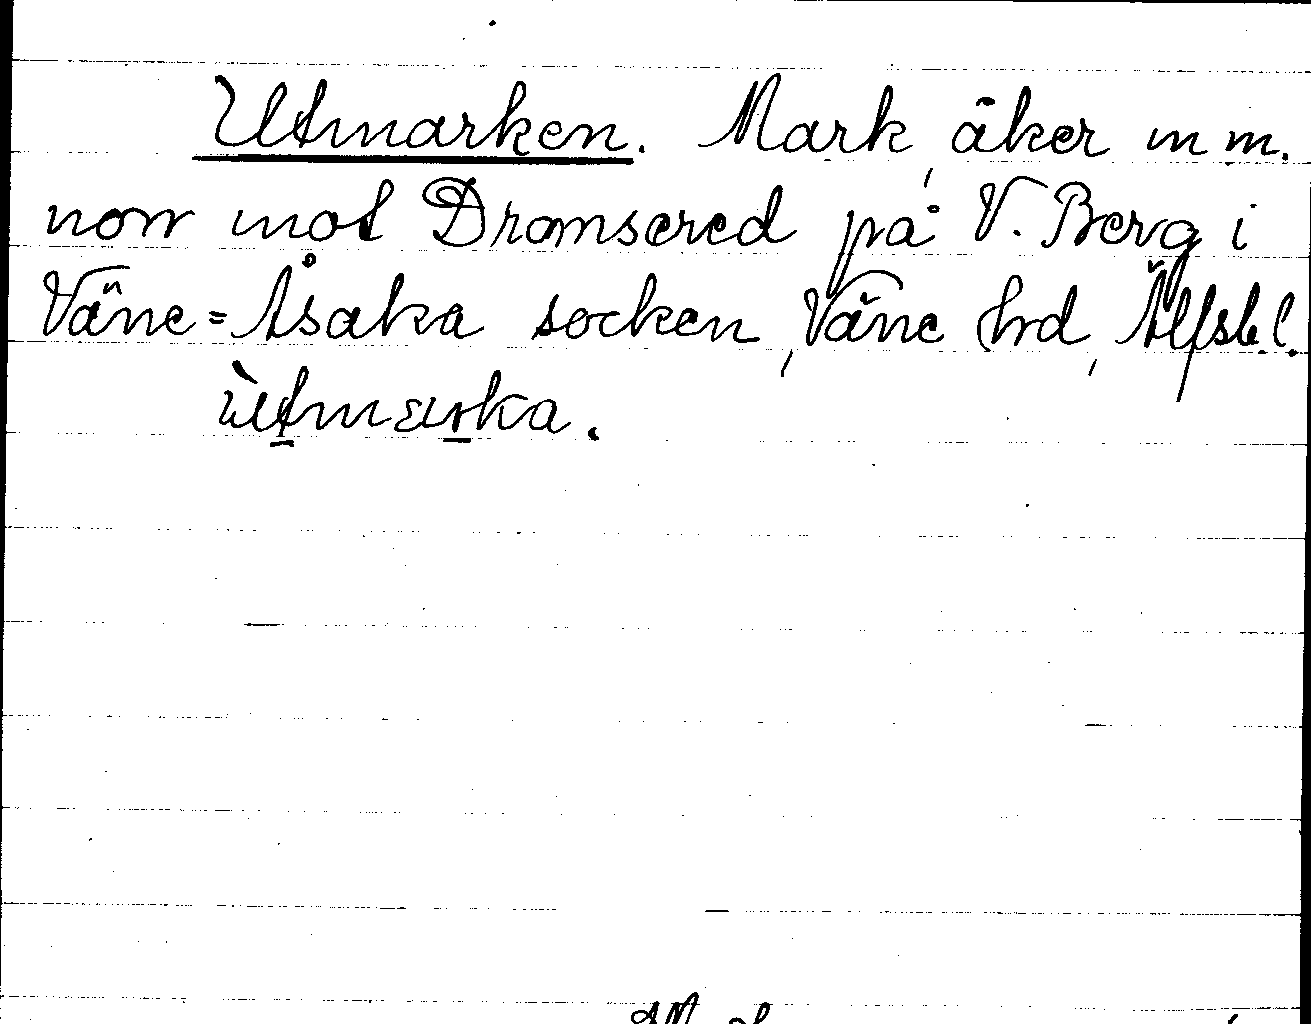 Utmarken. Mark, åker m m.
norr mot Dramsered på V. Berg i
Väne=Åsaka socken, Väne hrd, Älfsb. l.
ùtmarka.